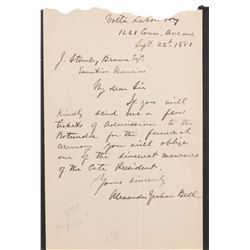 Volta Laboratory
1221 Conn. Avenue
Sept. 22d 1881
J. Stanley Brown Esq.
Executive Mansion
My dear Sir
If you will
kindly send me a few
tickets of admission to the
Rotunda for the funeral
ceremony you will oblige
one of the sincerest mourners
of the late President.
Yours sincerely
Alexander Graham Bell